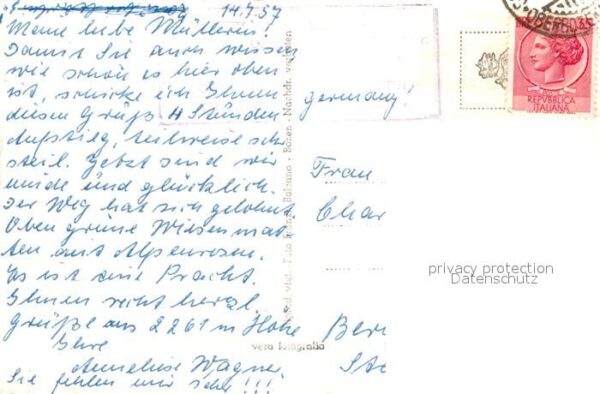 14.7.57
Meine liebe Müllerin!
Damit Sie auch wissen
wie schön es hier oben
ist, schicke ich Ihnen
diesen Gruß 4 Stunden
Aufstieg, teilweise sehr
steil. Jetzt sind wir
müde und glücklich.
Der Weg hat sich gelohnt.
Oben grüne Wiesenmat
ten mit Alpenrosen.
Es ist eine Pracht.
Ihnen recht herzl.
Grüße aus 2261 m Höhe
Ihre
Anneliese Wagner
Sie fehlen mir sehr!!!
Bolzano - Bozen - Nachdr. verboten
vera fotografia
germany!
Frau
Char
Bern
Str
REPVBBLICA
ITALIANA
privacy protection
Datenschutz